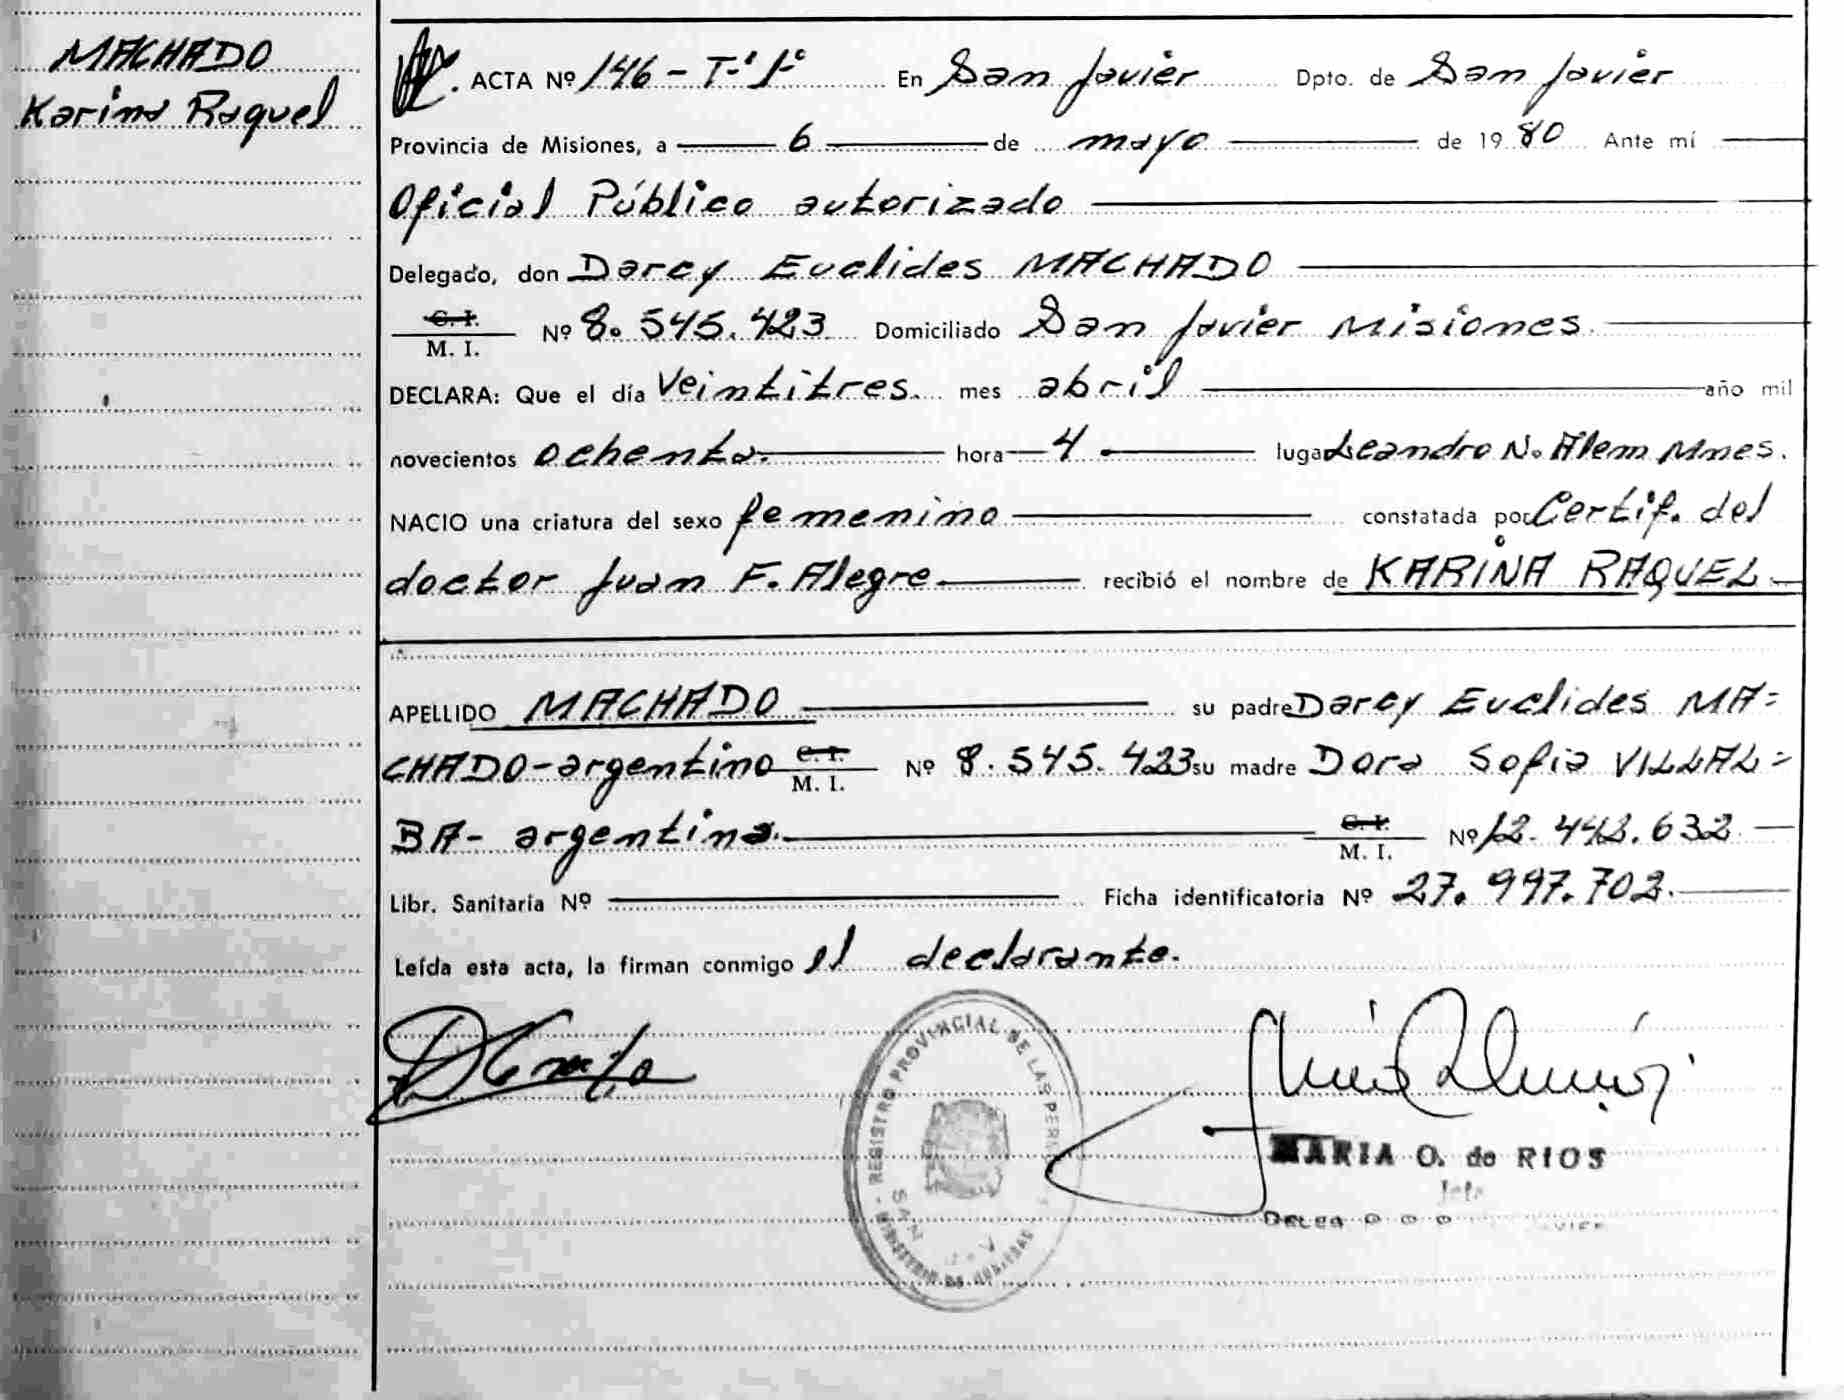 MACHADO
Karina Raquel
ACTA Nº 146 - T-º 1-º En San Javier Dpto. de San Javier
Provincia de Misiones, a 6 de mayo de 1980 Ante mí
Oficial Público autorizado
Delegado, don Darcy Euclides MACHADO
C. I.
M. I. Nº 8.545.423 Domiciliado San Javier Misiones.
DECLARA: Que el día Veintitres. mes abril año mil
novecientos ochenta. hora 4 lugar Leandro N. Alem Mnes.
NACIO una criatura del sexo femenino constatada por Certif. del
doctor Juan F. Alegre recibió el nombre de KARINA RAQUEL
APELLIDO MACHADO su padre Darcy Euclides MA=
CHADO-argentino C. I. M. I. Nº 8.545.423 su madre Dora Sofia VILLAL=
BA- argentina. C. I. M. I. Nº 12.442.632
Libr. Sanitaria Nº Ficha identificatoria Nº 27.997.702.
Leída esta acta, la firman conmigo el declarante.
REGISTRO PROVINCIAL DE LAS
SAN
MARIA O. de RIOS
Jefe